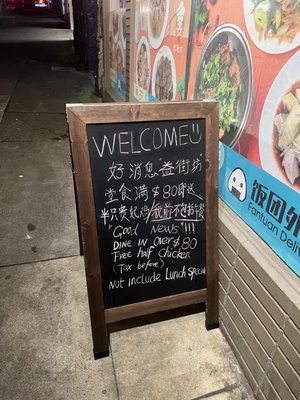 WELCOME
好消息益街坊
堂食满$80即送
半只黄妃鸡(税前不包特餐
Good News!!!
Dine in over $80
Free half chicken
(Tax before)
Not include Lunch Special
饭团外
Fantuan Deliv